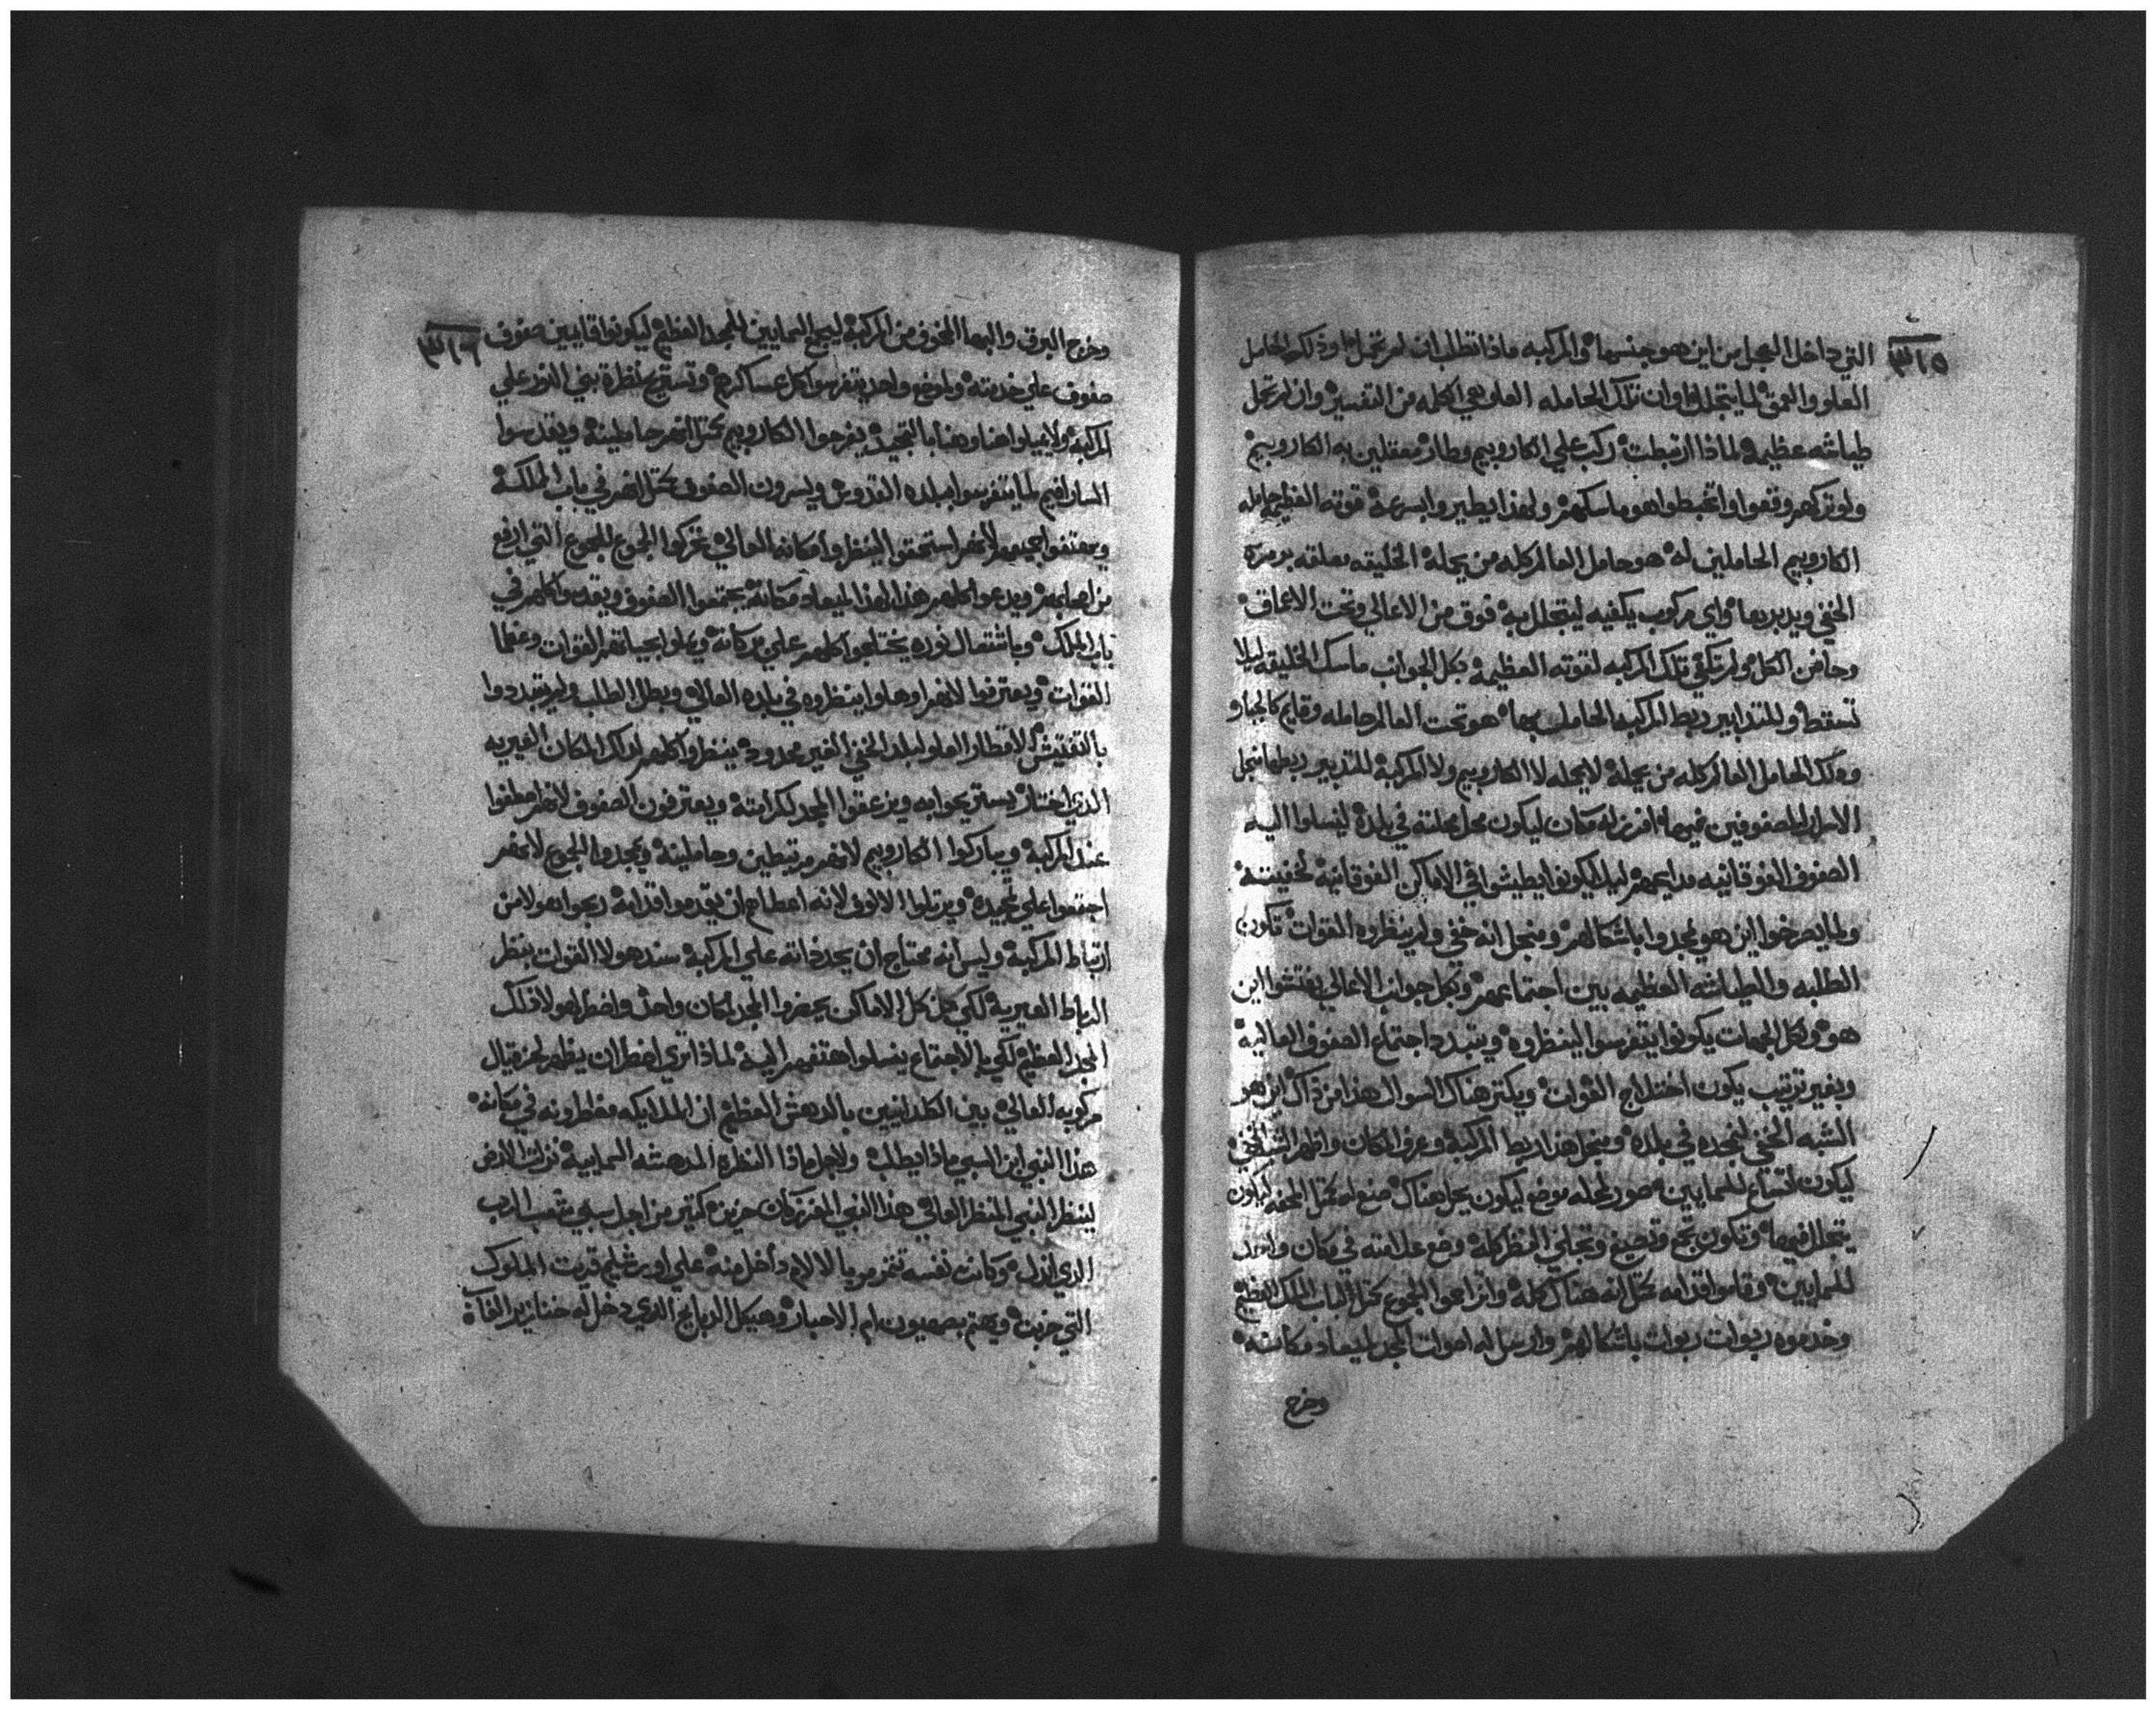 ٣١٥
التي داخل العجل من اين هو جنسها والمركبه ماذا تطلب ان لم تحمل
العلو والعمق لما يتجلل وان تلك الحامله العلو هي اكله من التفسير وان لم تحمل
طياشه عظيمه لماذا ارتبطت ركب علي الكاروبيم وطار معقلين به الكاروبيم
ولو تركهم وقعوا واتخبطوا هو ماسكهم ولهذا يطيروا بسرعة قوته العظيمه حامله
الكاروبيم الحاملين له هو حامل العالم كله من يحمله الخليقه معلقه برمزه
الخفي ويدبرها واي مركوب يكفيه ليتجلل به فوق من الاعالي وتحت الاعماق
وحاضن الكل ولم تكفي تلك المركبه لقوته العظيمه بكل الجوانب ماسك الخليقه ليلا
تسقط وللتدابير ربط المركبه الحامل بها هو تحت العالم حامله وقايم كالجبار
وذلك الحامل العالم كله من يحمله لا يحمله لا الكاروبيم ولا المركبة للتدبير ربطها منجل
الاسرار للصفوفين غيرها افرز له مكان ليكون محل محلته في بلده ليتسلوا اليه
الصفوف الفوقانيه مداعيهم ليلا يكونوا يطيشوا في الاماكن الفوقانية لخفيته
ولما يصرخوا اين هو يمجدوا باشكالهم ومنجل انه خفي ولم ينظروه القوات تكون
الطلبه والطياشه العظيمه بين اجتماعهم وبكل جوانب الاعالي يفتشوا اين
هو ولكل الجهات يكونوا يتفرسوا لينظروه ويتبدد اجتماع الصفوف العالية
وبغير ترتيب يكون اختلاج القوات ويكتر هناك السوال هذا من ذاك اين هو
الشبه الخفي لنمجده في بلده ومنجل هذا ربط المركبة وعرف المكان واظهر الشبه الخفي
ليكون اتساع للسمايين صور لحله موضع ليكون يحل هناك صنع له مثل المحفه ليكون
يتجلل فيها وتكون تجمع وتصيغ وتجلي المنظر كله وضع علامته في مكان واحد
للسمايين وقاموا قدامه مثل انه هناك كله وانزاحوا الجموع مثل لباب الملك العظيم
وخدموه ربوات ربوات باشكالهم وارسل له اصوات المجد لميعاد مكانه
وخرج
٣١٦
وخرج البرق والبها المخوف من المركبة ليجمع السمايين للمجد العظيم ليكونوا قايمين صفوف
صفوف علي خدمته ولموضع واحد يتفرسوا كل عساكرهم وتستريح نظرة بني النور علي
المركبة ولا يميلوا هنا وهنا بالتمجيد يفرحوا الكاروبيم مثل انهم حاملينه ويقدسوا
السارافيم لما يتفرسوا ببلده القدوس ويسرون الصفوف مثل انهم في باب المملكة
ويهتفوا جميعهم لانهم استحقوا لينظروا مكانه العالي يتحركوا الجموع للجموع التي ارفع
من اصحابهم ويدعوا كلهم هذا لهذا لميعاد مكانة يجتمعوا الصفوف ويقدسوا كلهم في
باب الملك وباشتعال نوره يختلجوا كلهم علي بركاته ويملوا بحياتهم القوات وعظما
القوات ويعترفوا لانهم اوهلوا ينظروه في بلده العالي وبطل الطلب ولم يتبددوا
بالتفتيش لاقطار العلو لبلد الخفي الغير محدود ينظروا كلهم لذلك المكان الغيريه
الذي اختار يستريحوا به ويزعقوا المجد لكرامته ويعترفون الصفوف لانهم اصطفوا
عند المركبة ويباركوا الكاروبيم لانهم مرتبطين وحاملينه ويمجدوا الجموع لانهم
اجتمعوا علي تمجيده ويرتلوا الالوف لانه اعطاهم ان يقدموا قدامه ربحوا هولا من
ارتباط المركبة وليس انه محتاج ان يحد ذاته علي المركبة سند هولا القوات بنظر
الرباط الغيرية لكي من كل الاماكن يحضروا المجد لمكان واحد واضطر هولا ذلك
المجد العظيم لكي بالاجتماع يتسلوا هتفهم اليه لماذا تري اضطر ان يظهر لحزقيال
مركوبه العالي بين الكلدانيين بالدهش العظيم ان الملايكه مضطرونه في مكانه
هذا النبي ابن السبي ماذا يطلب ولاجل ماذا النظره المدهشه السمايية نزلت الارض
لينظر النبي المنظر العالي هذا النبي المفرز كان حزين كتير من اجل سبي شعب الرب
الذي انذل وكانت نفسه تتمرمر بالالام داخل منه علي اورشليم قريت الملوك
التي خربت ويهتم بصهيون ام الاحبار وهيكل الدبايح الذي دخل له خنازير الغابة